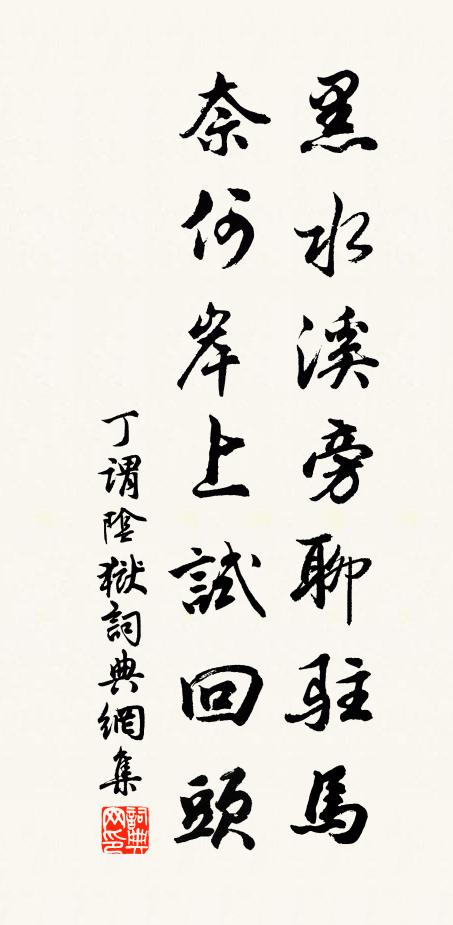 黑水溪旁聊駐馬
奈何岸上試回頭
丁謂陰獄詞典網集
詞典网印